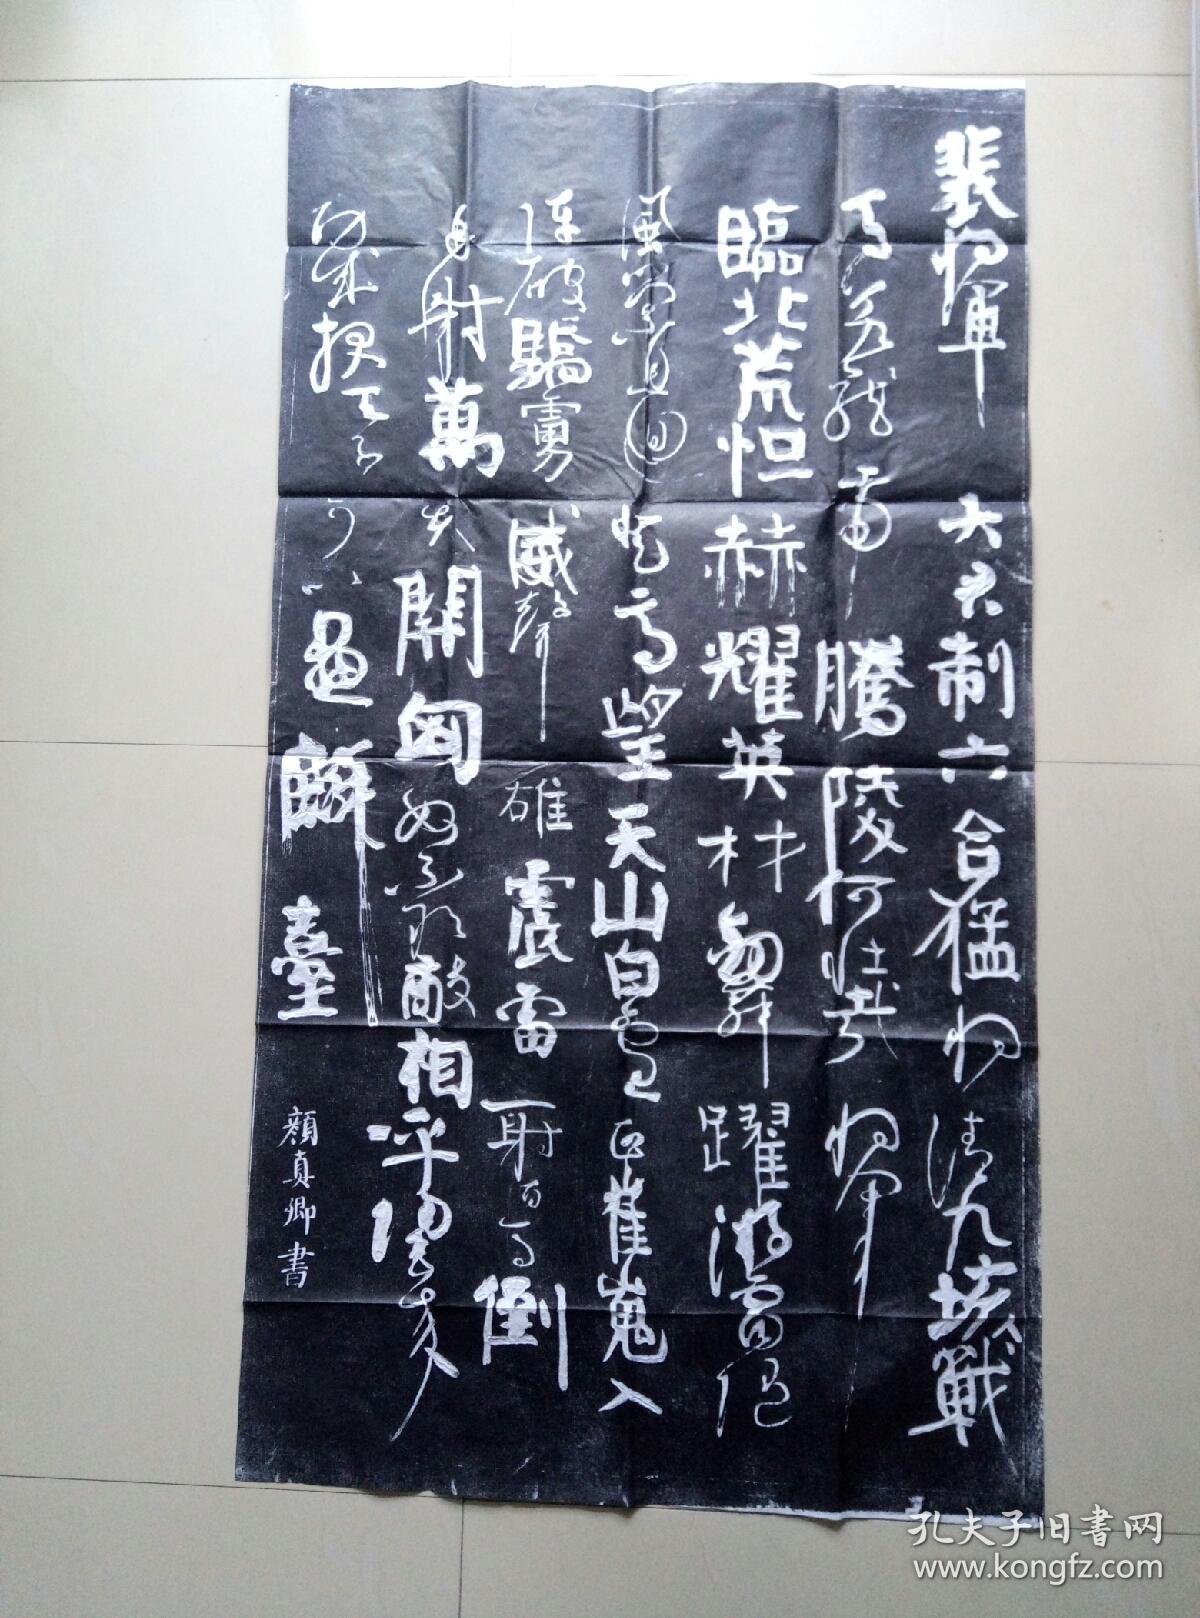 裴將軍 大君制六合猛將清九垓戰
馬若龍虎騰陵何壯哉將軍
臨北荒烜赫耀英材劍舞躍游電隨
風縈且迴登高望天山白雲正崔嵬入
陣破驕虜威聲雄震雷一射百馬倒
再射萬夫開匈奴不敢敵相呼歸去來
功成報天子可以畫麟臺
顏真卿書
孔夫子旧書网
www.kongfz.com